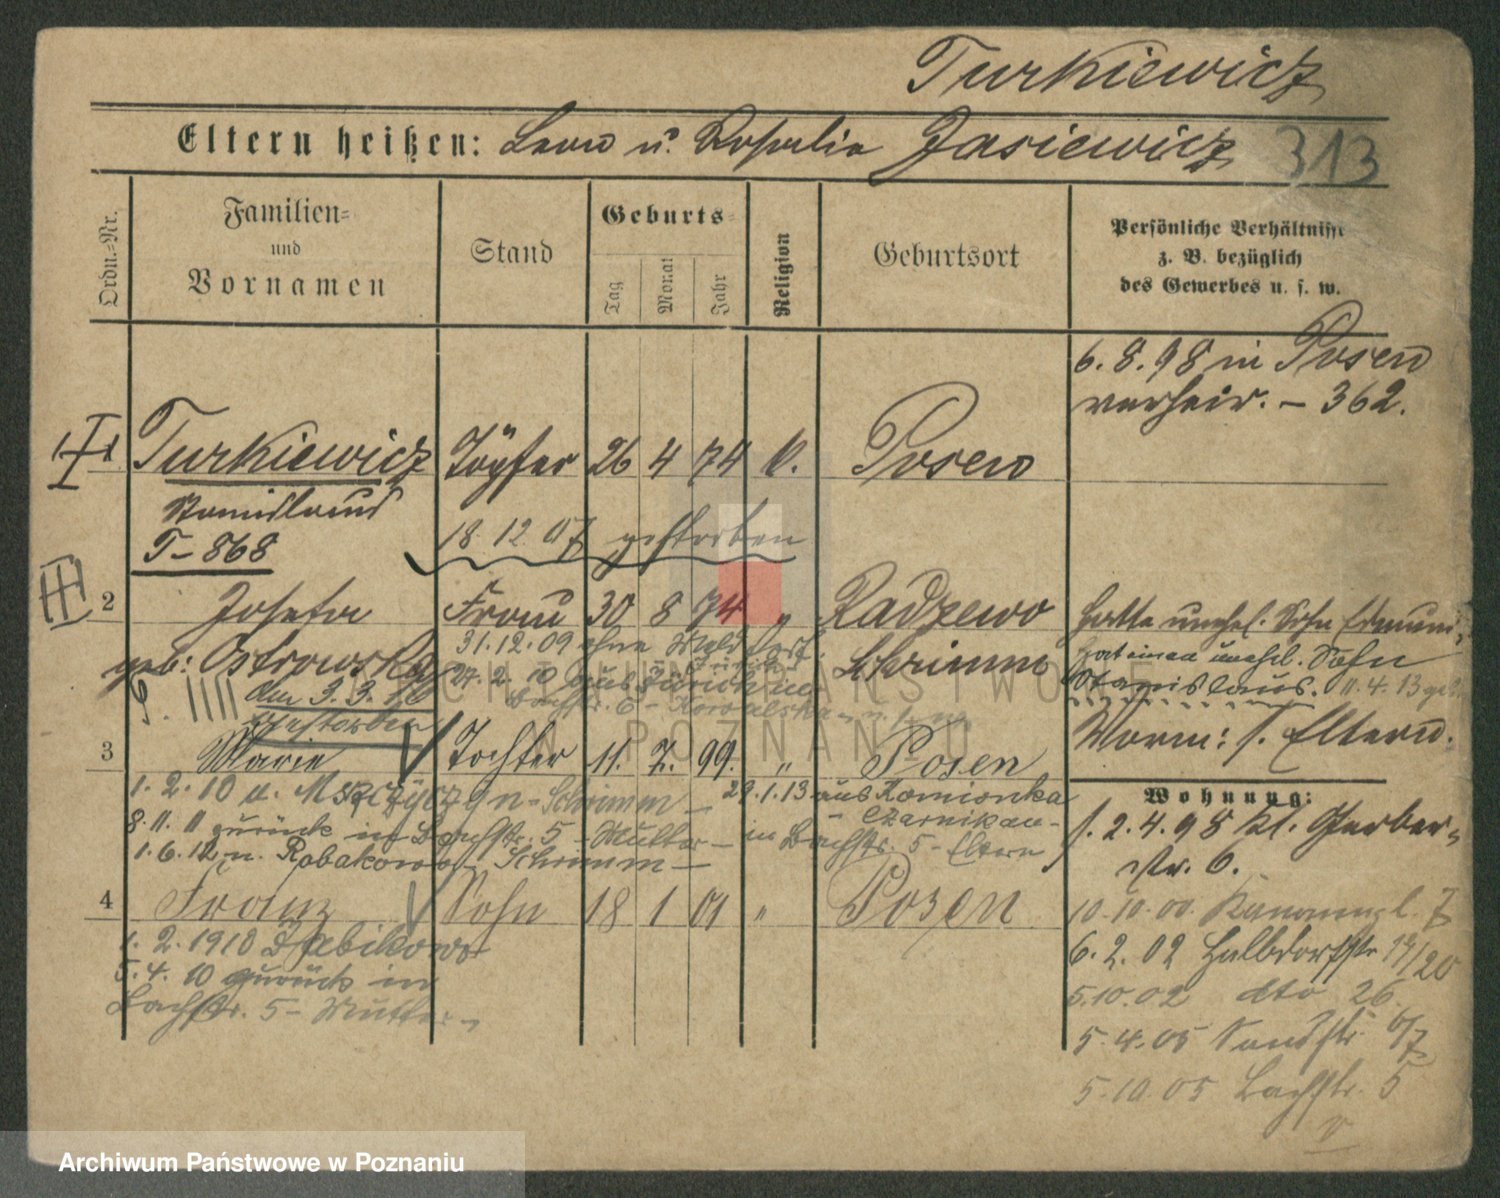 Turkiewicz
Eltern heißen: Leon u. Rosalia Jasiewicz 313
Ordn.-Nr.
Familien-
und
Vornamen
Stand
Geburts-
Tag
Monat
Jahr
Religion
Geburtsort
Persönliche Verhältnisse
z. B. bezüglich
des Gewerbes u. s. w.
6.8.98 in Posen
verheir. - 362.
1 Turkiewicz Töpfer 26 4 74 k. Posen
Stanislaus
T-868
18.12.07 gestorben
2 Josefa Frau 30 8 74 " Radzewo
Hatte unehel. Sohn Edmund
geb: Ostrowska
31.12.09 ohne
Schrimm
hat einen unehl. Sohn
27.2.10 aus zurück in
Stanislaus. 11.4.13
Bachstr. 6 - Kowalska
am 3.3.16
gestorben
Vorm: s. Eltern.
3 Marie Tochter 11. 7. 99. " Posen
1.2.10 n. - Schrimm - 29.1.13 aus Kamionka
Czarnikau -
8.11.11 zurück in Bachstr. 5 - Mutter - in Bachstr. 5 - Eltern
1.6.12 n. Robakowo - Schrimm -
4 Franz Sohn 18 1 01 " Posen
1.2.1910 Żabikowo
5.4.10 zurück in
Bachstr. 5 - Mutter -
Wohnung:
s. 2.4.98 Kl. Gerber-
str. 6.
10.10.00 7
6.2.02 Halbdorfstr 19/20
5.10.02 dto 26.
5.4.05 Sandstr. 6/7
5.10.05 Bachstr. 5
ARCHIWUM PAŃSTWOWE
W POZNANIU
Archiwum Państwowe w Poznaniu